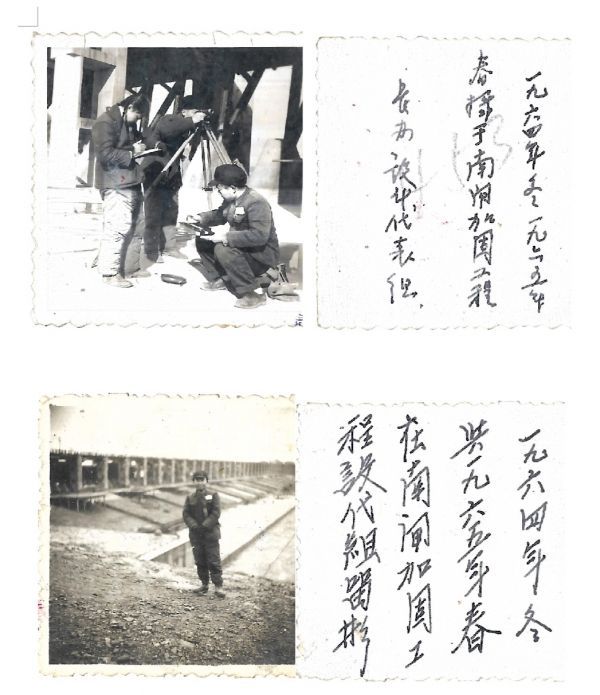 一九六四年冬一九六五年
春摄于南闸加固工程
长办设计代表组.
一九六四年冬
与一九六五年春
在南闸加固工
程设代組留影